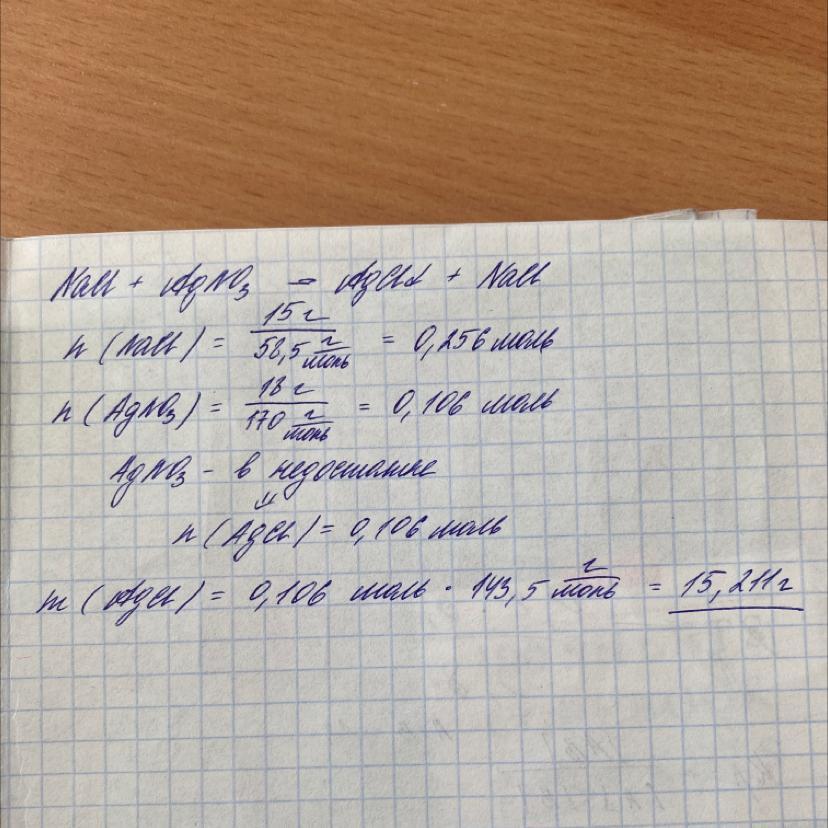 NaCl + AgNO₃ = AgCl↓ + NaCl
n (NaCl) = 15 г / 58,5 г/моль = 0,256 моль
n (AgNO₃) = 18 г / 170 г/моль = 0,106 моль
AgNO₃ - в недостатке
⇓
n (AgCl) = 0,106 моль
m (AgCl) = 0,106 моль · 143,5 г/моль = 15,211 г